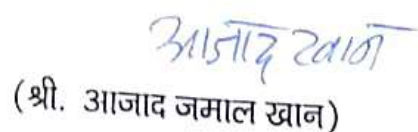 आजाद खान
(श्री. आजाद जमाल खान)